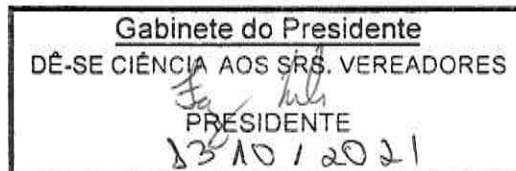 Gabinete do Presidente
DÊ-SE CIÊNCIA AOS SRS. VEREADORES
PRESIDENTE
13 10 / 2021